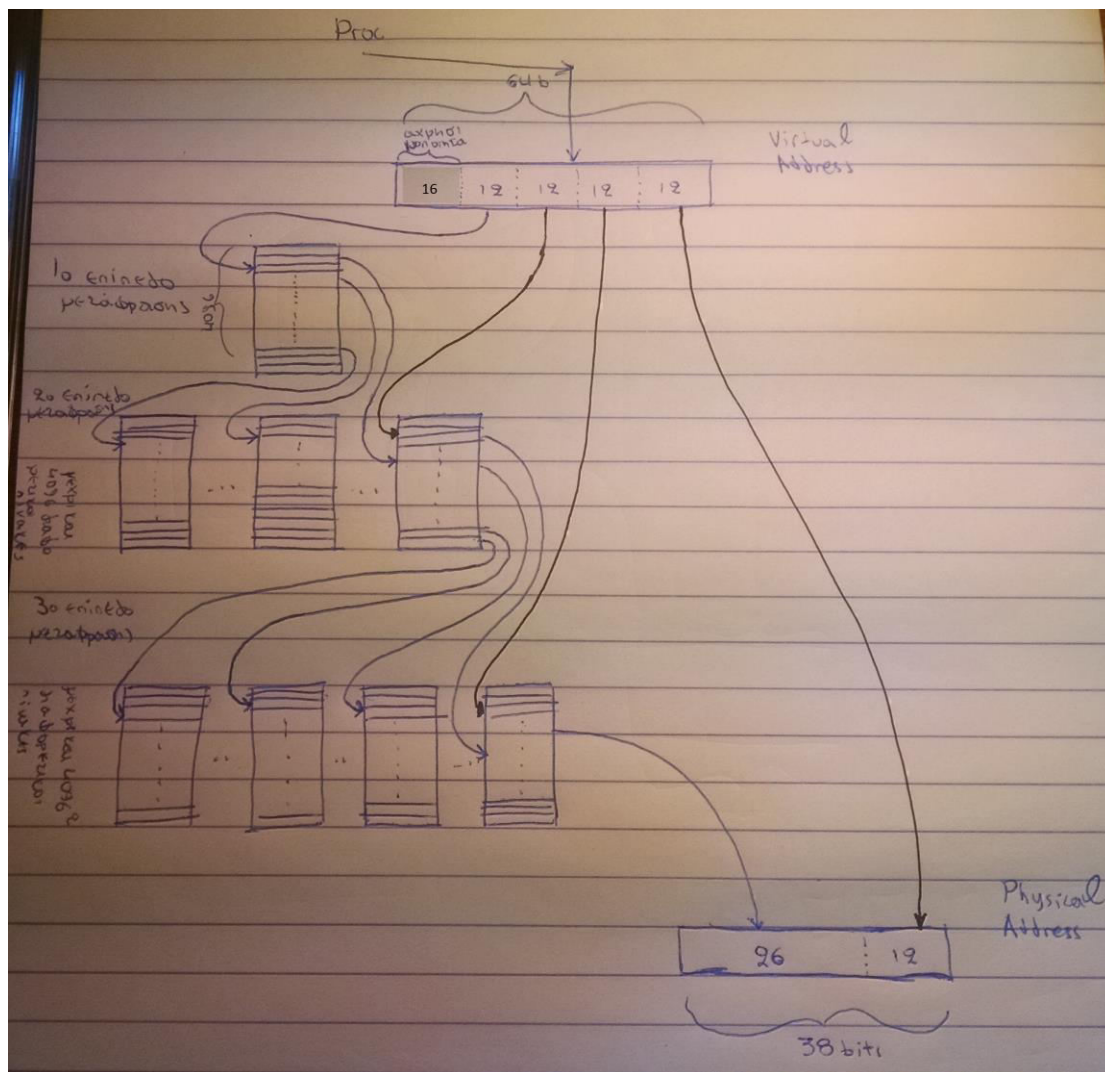 Proc
64b
αχρησι
μοποιητα
Virtual
Address
16 12 12 12 12
1ο επίπεδο
μετάφρασης
4096
2ο επίπεδο
μετάφρασης
μέχρι και
4096
πίνακες
3ο επίπεδο
μετάφρασης
μέχρι και 4096²
διαφορετικοί
πίνακες
Physical
Address
26 12
38 bits